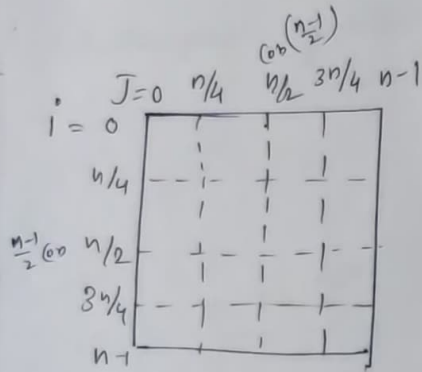 (or) (n-1/2)
J=0 n/4 n/2 3n/4 n-1
i = 0
n/4
n-1/2 (or) n/2
3n/4
n-1